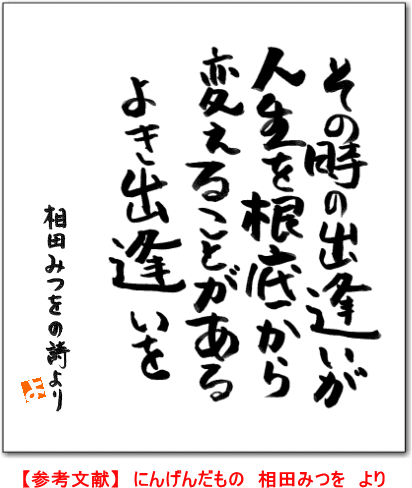 その時の出逢いが
人生を根底から
変えることがある
よき出逢いを
相田みつをの詩より
よ
【参考文献】 にんげんだもの 相田みつを より